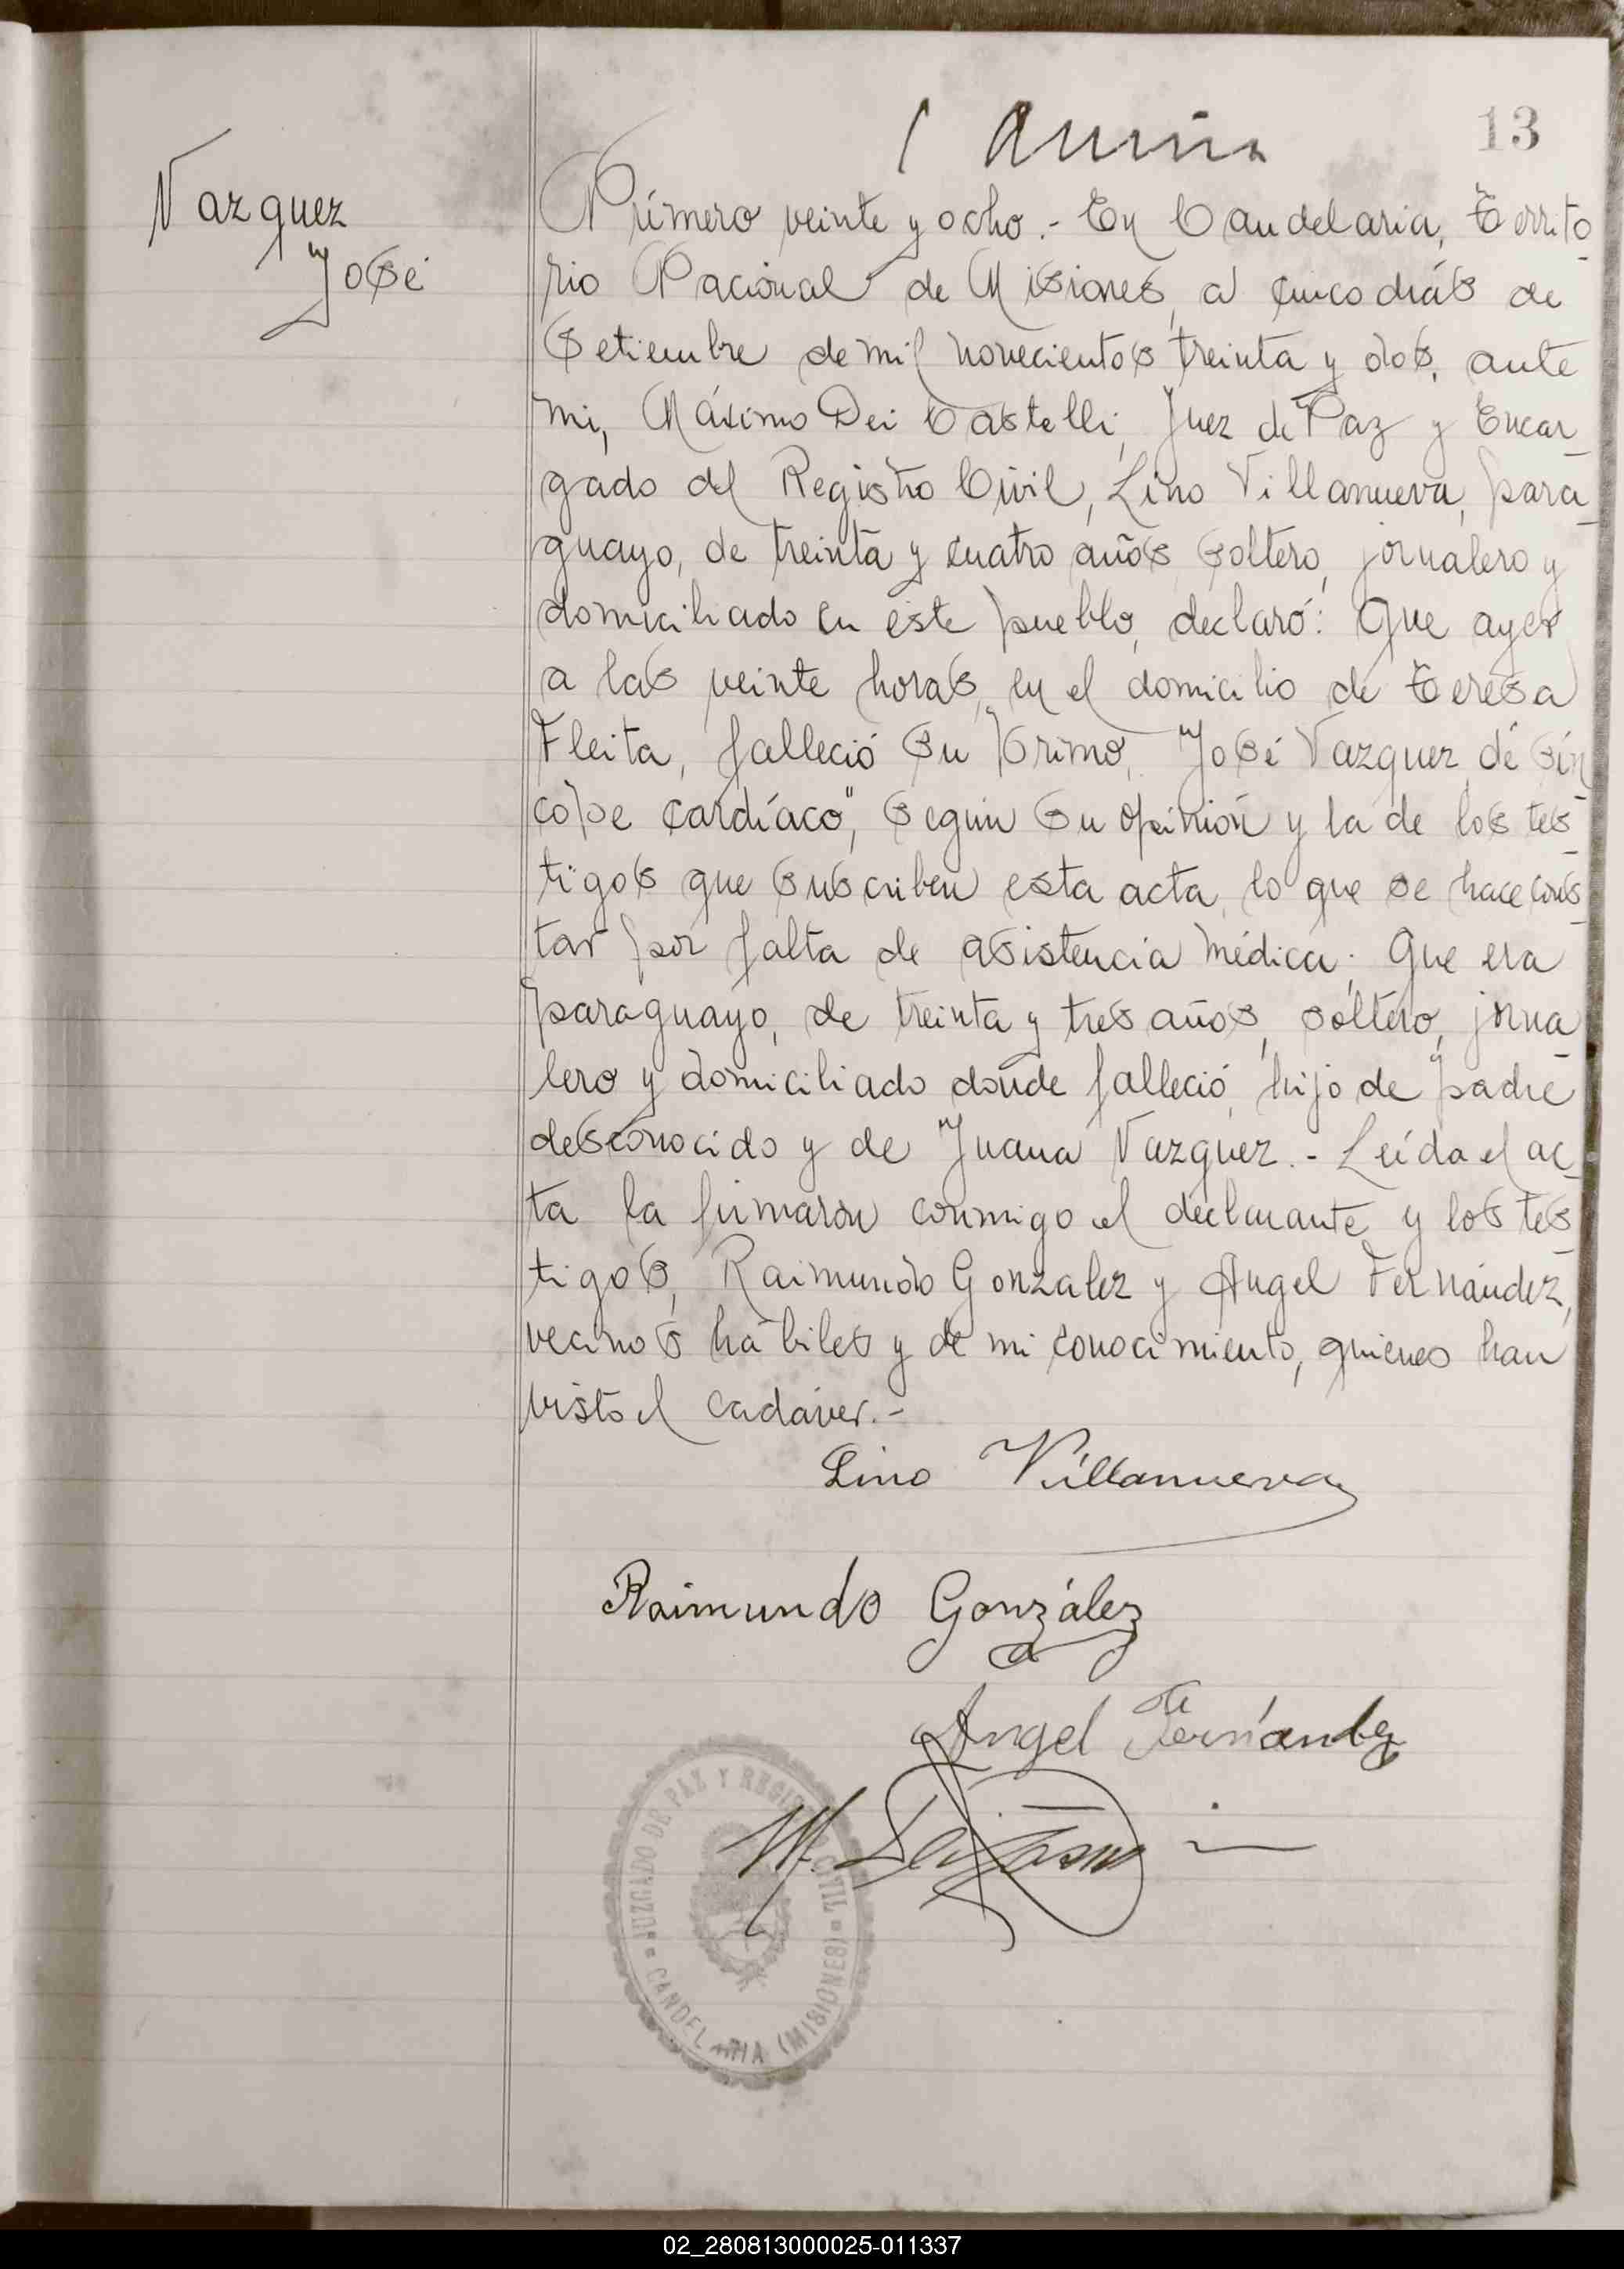 13
Vazquez
José
Número veinte y ocho.- En Candelaria, Territo
rio Nacional de Misiones, a cinco días de
Setiembre de mil novecientos treinta y dos, ante
mi, Máximo Dei Castelli, Juez de Paz y Encar
gado del Registro Civil, Lino Villanueva, para
guayo, de treinta y cuatro años, soltero, jornalero y
domiciliado en este pueblo, declaró: Que ayer
a las veinte horas, en el domicilio de Teresa
Fleita, falleció su primo, José Vazquez, de "sín
cope cardíaco", según su opinión y la de los tes
tigos que suscriben esta acta, lo que se hace cons
tar por falta de asistencia médica; Que era
paraguayo, de treinta y tres años, soltero, jorna
lero y domiciliado donde falleció, hijo de padre
desconocido y de Juana Vazquez.- Leída el ac
ta la firmaron conmigo el declarante y los tes
tigos, Raimundo Gonzalez y Angel Fernández,
vecinos hábiles y de mi conocimiento, quienes han
visto el cadáver.-
Lino Villanueva
Raimundo González
Angel Fernández
JUZGADO DE PAZ Y REGISTRO CIVIL
CANDELARIA (MISIONES)
02_280813000025-011337